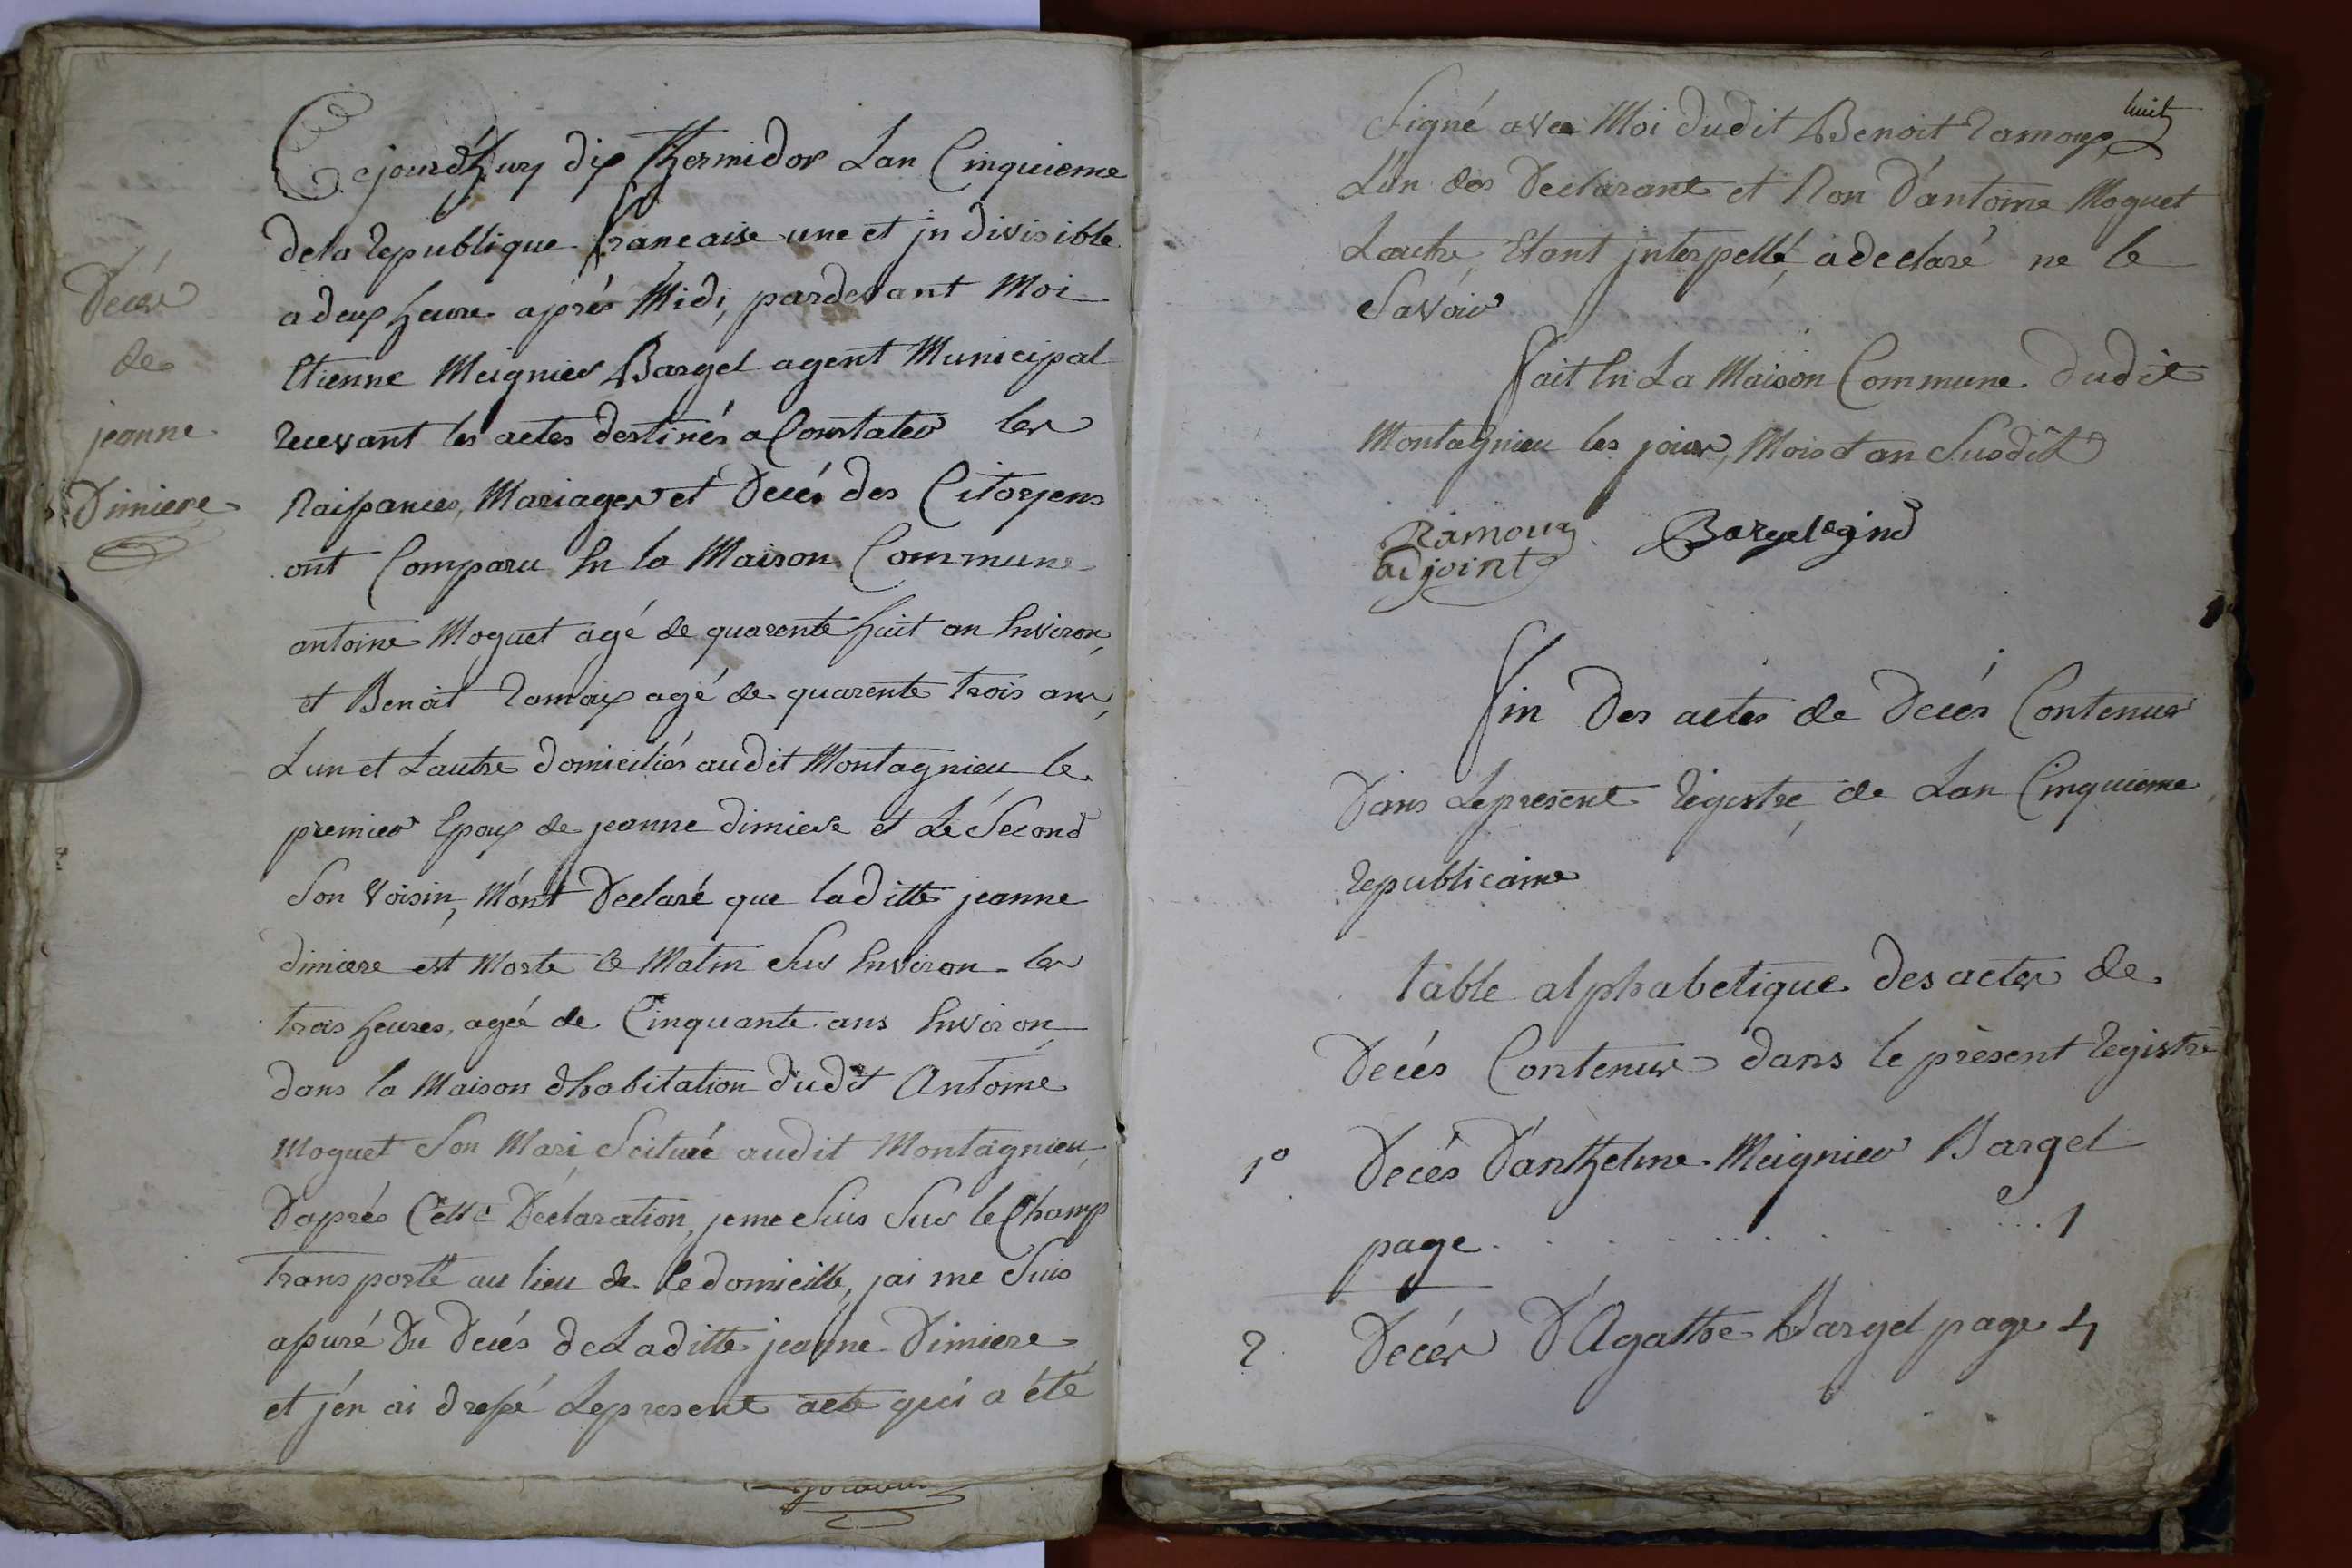 Décés
de
jeanne
Dimiere
Cejourd'huy dix Thermidor Lan Cinquieme
dela republique francaise une et jndivisible
a deux heure aprés Midi, pardevant Moi
Etienne Meignier Bargel agent Municipal
recevant les actes destinés a Constater les
Naissances, Mariages et Decés des Citoyens
ont Comparu En la Maison Commune
antoine Moguet agé de quarente huit an Environ,
et Benoit Ramoux agé de quarente trois ans,
Lun et Lautre domiciliés audit Montagnieu le
premier Epoux de jeanne dimiere et Le Second
Son Voisin, M'ont Declaré que laditte jeanne
dimiere est Morte ce Matin Sur Environ les
trois heures, agée de Cinquante ans Environ,
dans la Maison dhabitation dudit Antoine
Moguet Son Mari Scituée audit Montagnieu,
D'aprés Cette Déclaration, jeme Suis Sur le Champ
transporté au lieu de Ce domicille, jai me Suis
assuré Du Decés de Laditte jeanne Dimiere
et j'en ai dressé Lepresent acte qui a été
huit
Signé avec Moi dudit Benoit Ramoux
L'un des Declarant et Non D'antoine Moguet
Lautre, Etant jnterpellé, a declaré ne le
Savoir
Fait En La Maison Commune dudit
Montagnieu les jour, Mois et an Susdit
Ramoux Bargel agnt
adjoint
Fin Des actes de Decés Contenus
Dans Lepresent Registre, de Lan Cinquieme
republicaine
table alphabetique des actes de
Decés Contenus dans le présent registre
1° Decés D'anthelme Meignier Bargel
page . . . . . . . . . . . 1
2 Decés D'Agathe Bargel page 4